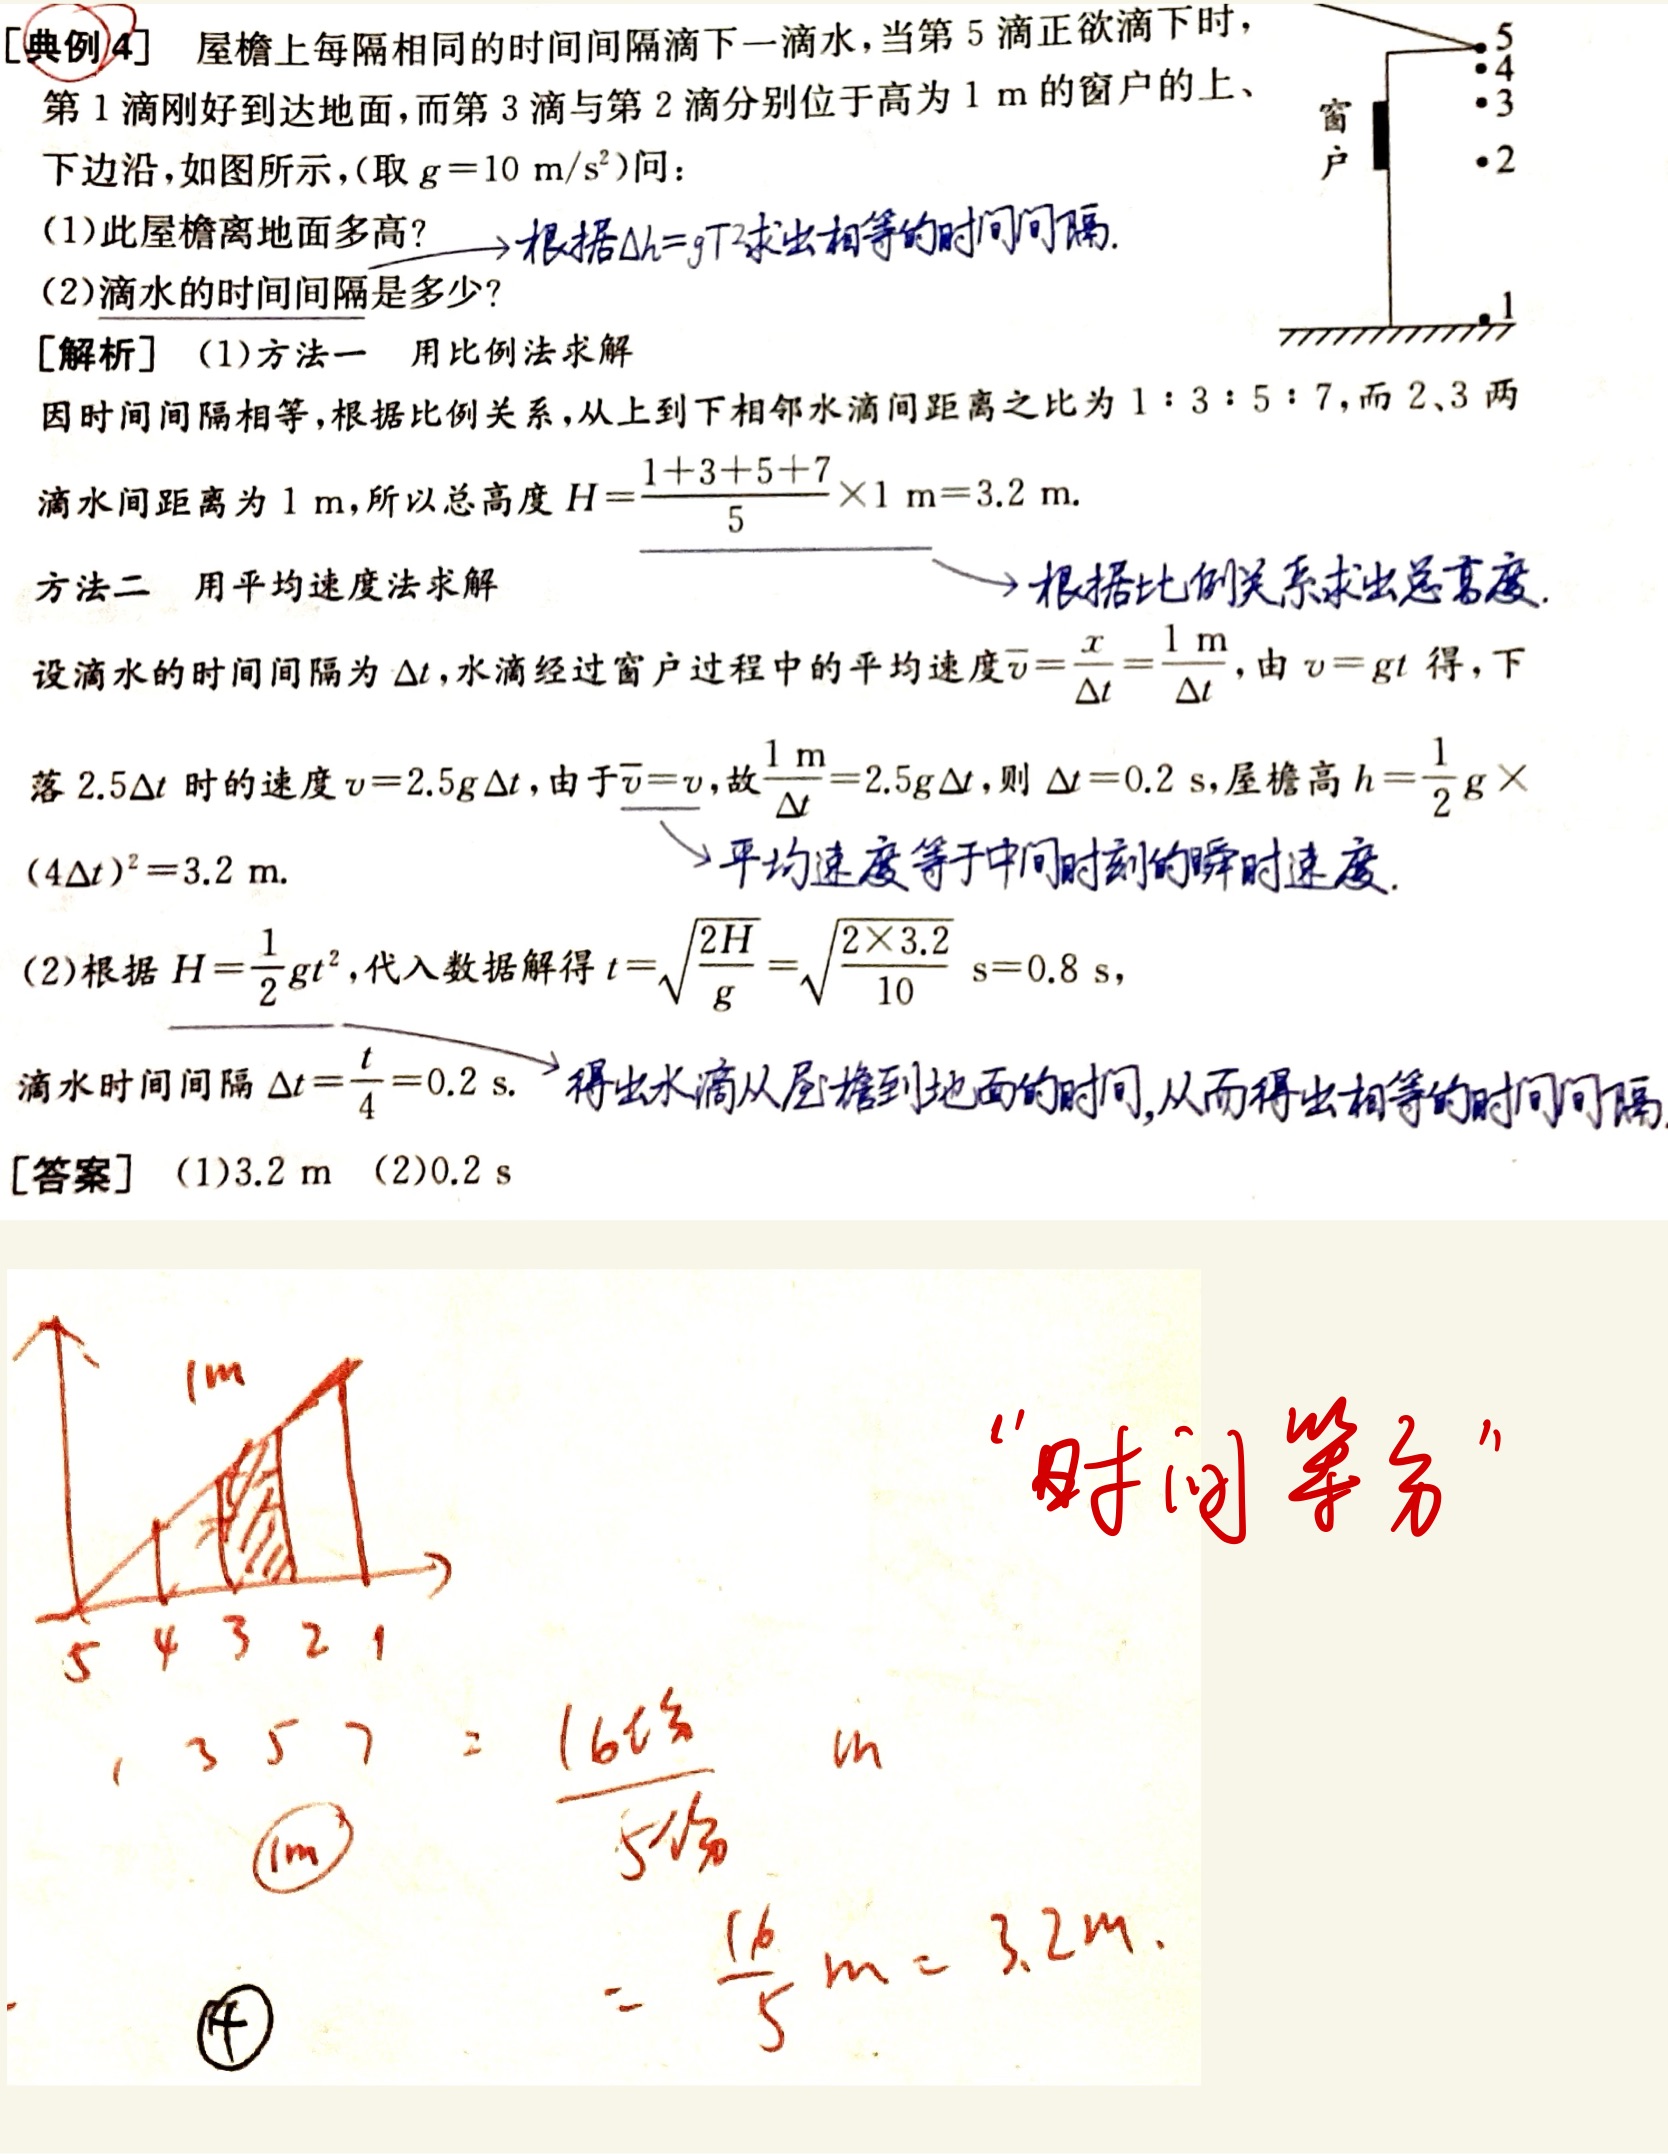 [典例4] 屋檐上每隔相同的时间间隔滴下一滴水,当第5滴正欲滴下时,
第1滴刚好到达地面,而第3滴与第2滴分别位于高为1 m的窗户的上、
下边沿,如图所示,(取g=10 m/s²)问:
(1)此屋檐离地面多高?
→根据Δh=gT²求出相等的时间间隔.
(2)滴水的时间间隔是多少?
5
4
3
窗户
2
1
[解析] (1)方法一 用比例法求解
因时间间隔相等,根据比例关系,从上到下相邻水滴间距离之比为1∶3∶5∶7,而2、3两
滴水间距离为1 m,所以总高度H=\frac{1+3+5+7}{5}×1 m=3.2 m.
方法二 用平均速度法求解
→根据比例关系求出总高度.
设滴水的时间间隔为Δt,水滴经过窗户过程中的平均速度\overline{v}=\frac{x}{Δt}=\frac{1 m}{Δt},由v=gt得,下
落2.5Δt时的速度v=2.5gΔt,由于\overline{v}=v,故\frac{1 m}{Δt}=2.5gΔt,则Δt=0.2 s,屋檐高h=\frac{1}{2}g×
(4Δt)²=3.2 m.
→平均速度等于中间时刻的瞬时速度.
(2)根据H=\frac{1}{2}gt²,代入数据解得t=\sqrt{\frac{2H}{g}}=\sqrt{\frac{2×3.2}{10}} s=0.8 s,
滴水时间间隔Δt=\frac{t}{4}=0.2 s.
→得出水滴从屋檐到地面的时间,从而得出相等的时间间隔.
[答案] (1)3.2 m (2)0.2 s
1m
5 4 3 2 1
“时间等分”
1 3 5 7 = \frac{16份}{5份} m
1m
= \frac{16}{5} m = 3.2m.
④